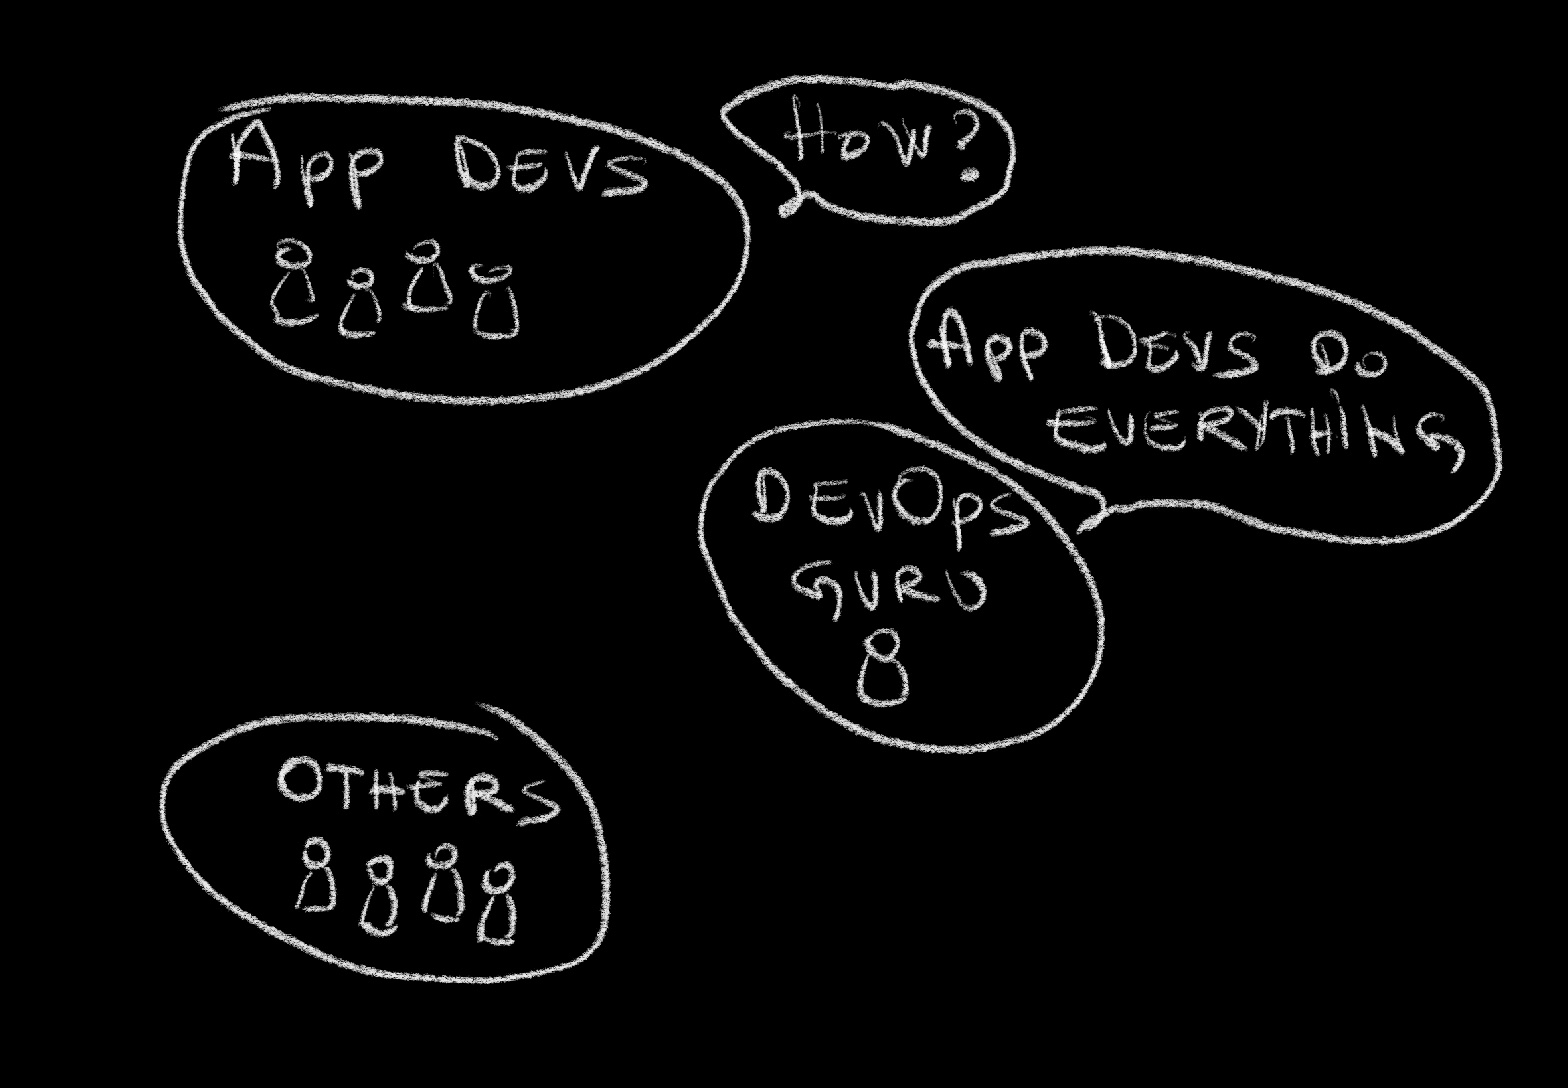 App DEVS
How?
App DEVS Do
EVERYTHING
DEVOps
GURU
OTHERS